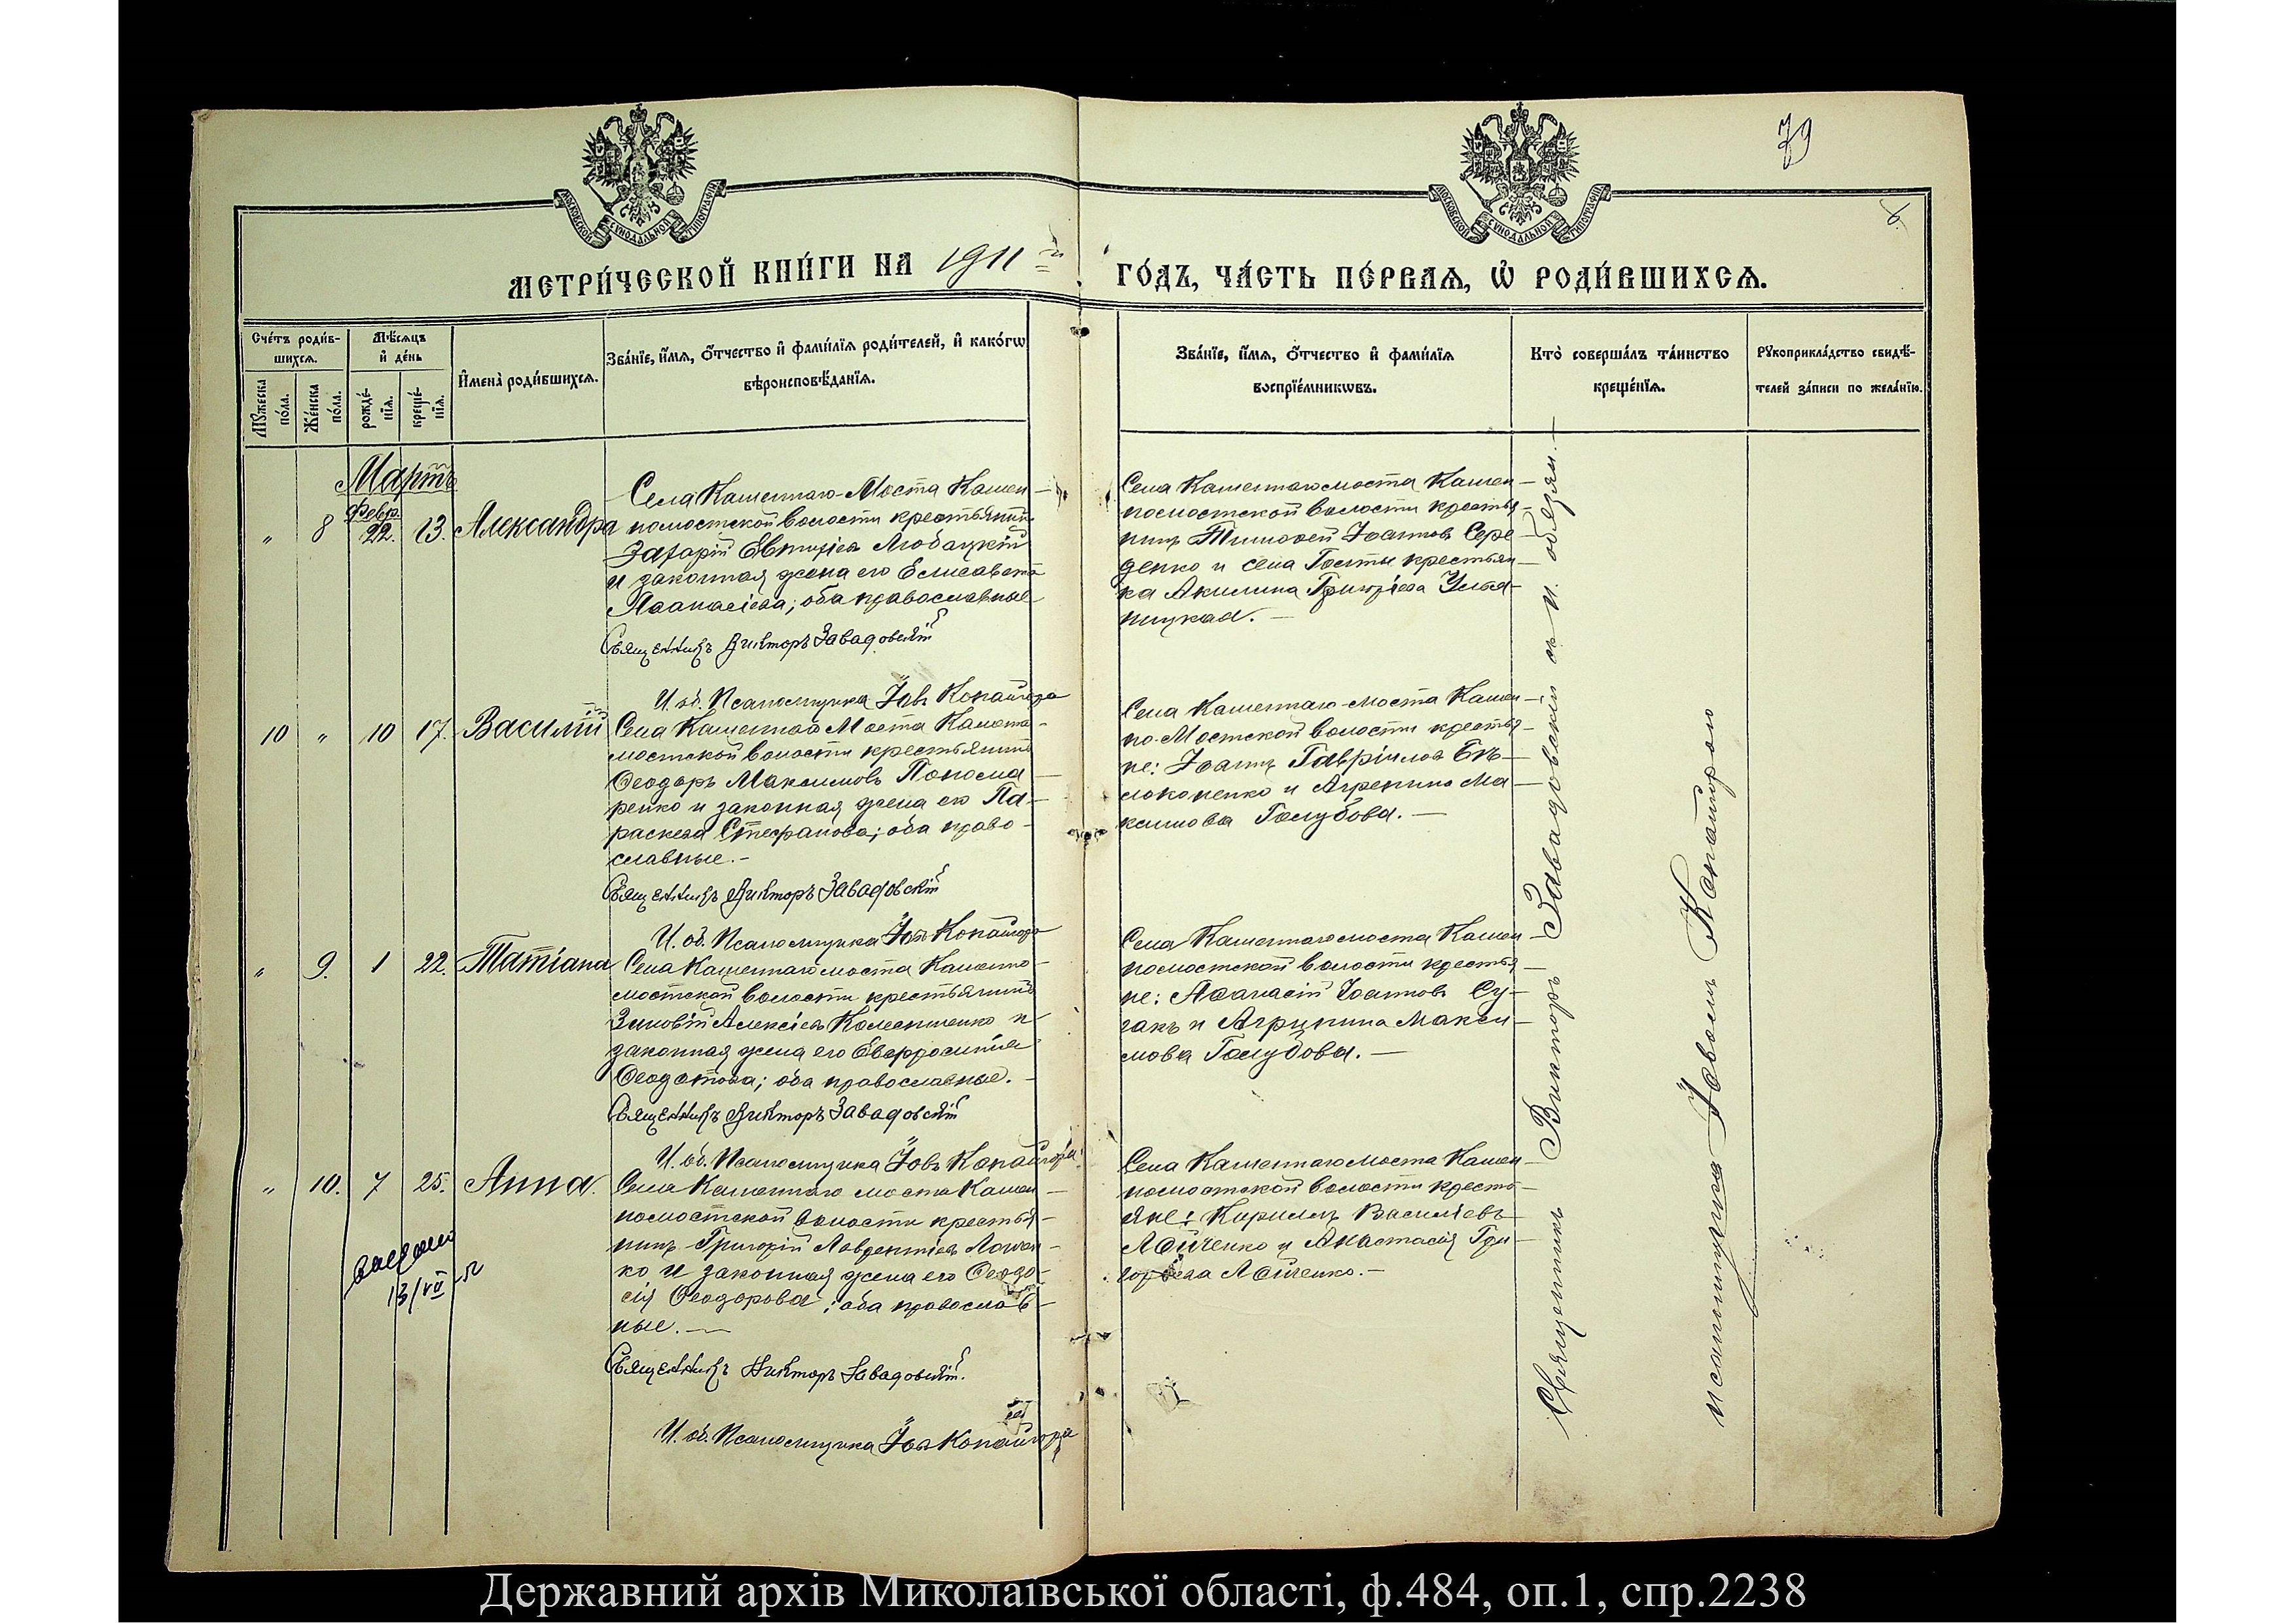 79
6.
МОСКОВСКОЙ СѴНОДАЛЬНОЙ ТИПОГРАФІИ
МОСКОВСКОЙ СѴНОДАЛЬНОЙ ТИПОГРАФІИ
МЕТРИ́ЧЕСКОЙ КНИ́ГИ НА 1911 й ГО́ДЪ, ЧА́СТЬ ПЕ́РВАѦ, Ѡ҆ РОДИ́ВШИХСѦ.
Сче́тъ роди́в-
шихсѧ.
Мꙋжеска по́ла.
Же́нска по́ла.
Мѣ́сѧцъ
и҆ де́нь
рожде́-нїѧ.
креще́-нїѧ.
И҆мена̀ роди́вшихсѧ.
Зва́нїе, и҆́мѧ, ѻ҆́тчество и҆ фами́лїѧ роди́телей, и҆ како́гѡ
вѣроисповѣ́данїѧ.
Зва́нїе, и҆́мѧ, ѻ҆́тчество и҆ фами́лїѧ
воспрїе́мникѡвъ.
Кто̀ соверша́лъ та́инство
креще́нїѧ.
Рꙋкоприкла́дство свидѣ́-
телей за́писи по жела́нїю.
Мартъ
„ 8 Февр. 22. 13. Александра
Села Каменнаго-Моста Камен-
номостской волости крестьянинъ
Захарій Евтихіевъ Любацкій
и законная жена его Елисавета
Аѳанасіева; оба православные
Священникъ Викторъ Завадовскій
И. об. Псаломщика Іовъ Копайгора
Села Каменнаго моста Камен-
номостской волости крестья-
нинъ Тимоѳей Іоанновъ Сере-
денко и села крестьян-
ка Акилина Григоріева
10 „ 10 17. Василій
Села Каменнаго Моста Каменно-
мостской волости крестьянинъ
Ѳеодоръ Максимовъ Понома-
ренко и законная жена его Па-
раскева Стефанова; оба право-
славные.-
Священникъ Викторъ Завадовскій
И. об. Псаломщика Іовъ Копайгора
Села Каменнаго-Моста Камен-
но-Мостской волости крестья-
не: Іоаннъ Гавріиловъ Бѣ-
локоненко и Агрепина Ма-
ксимова Голубова. —
„ 9. 1 22. Татіана
Села Каменнаго моста Каменно-
мостской волости крестьянинъ
Зиновій Алексіевъ и
законная жена его Евфросинія
Ѳеодотова; оба православные. -
Священникъ Викторъ Завадовскій
И. об. Псаломщика Іовъ Копайгора
Села Каменнаго моста Камен-
номостской волости крестья-
не: Аѳанасій Іоанновъ Су-
гакъ и Агрипина Макси-
мова Голубова. —
„ 10. 7 25. Анна.
Села Каменнаго моста Камен-
номостской волости крестья-
нинъ Григорій Лаврентіевъ
ко и законная жена его Ѳеодо-
сія Ѳеодорова; оба православ-
ные. —
Священникъ Викторъ Завадовскій.
И. об. Псаломщика Іовъ Копайгора
13/VII
Села Каменнаго Моста Камен-
номостской волости кресть-
яне: Кириллъ Василіевъ
и Анастасія Гри-
горіева
Священникъ Викторъ Завадовскій съ и. обязан. —
псаломщика Іовомъ Копайгорою
Державний архів Миколаївської області, ф.484, оп.1, спр.2238